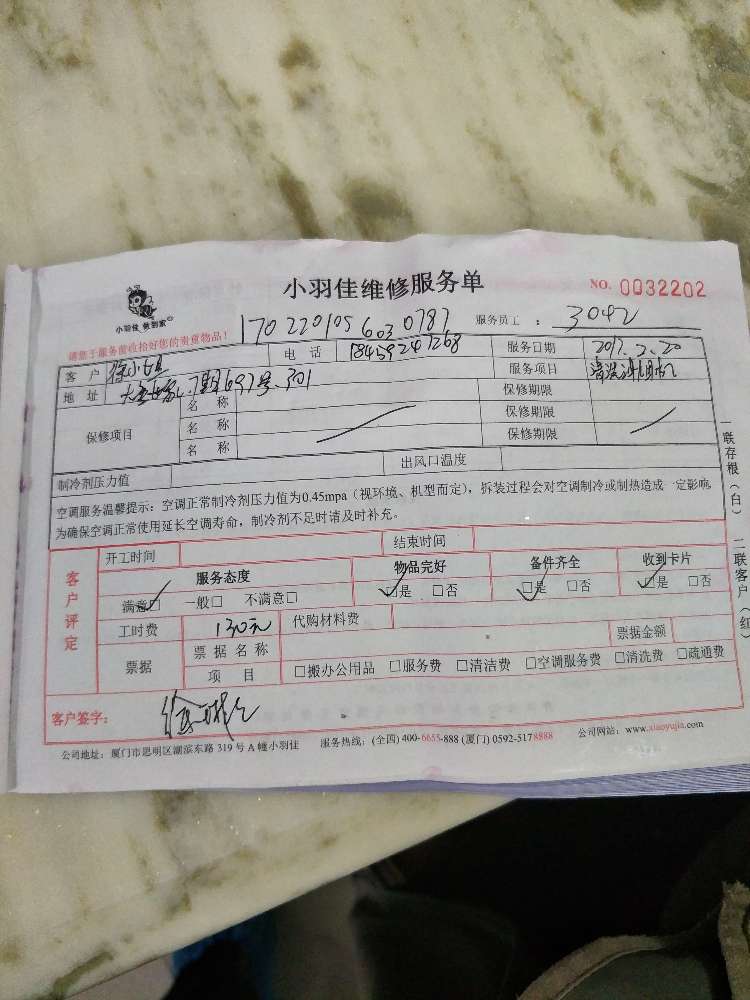 小羽佳维修服务单
NO. 0032202
小羽佳 做到家
请您于服务前收拾好您的贵重物品！
1702201056030787
服务员工： 3042
客户 徐小姐 电话 18459241268 服务日期 2017.2.20
地址 7期697号301 服务项目 清洗洗衣机
保修项目
名称 保修期限
名称 保修期限
名称 保修期限
制冷剂压力值 出风口温度
空调服务温馨提示：空调正常制冷剂压力值为0.45mpa（视环境、机型而定），拆装过程会对空调制冷或制热造成一定影响
为确保空调正常使用延长空调寿命，制冷剂不足时请及时补充。
客户评定
开工时间 结束时间
服务态度 物品完好 备件齐全 收到卡片
满意☑ 一般□ 不满意□ ☑是 □否 ☑是 □否 ☑是 □否
工时费 130元 代购材料费
票据 票据名称 票据金额
项目 □搬办公用品 □服务费 □清洁费 □空调服务费 □清洗费 □疏通费
客户签字：
公司地址：厦门市思明区湖滨东路319号A幢小羽佳 服务热线：(全四) 400-6655-888 (厦门) 0592-5178888 公司网站：www.xiaoyujia.com
一联存根（白） 二联客户（红）